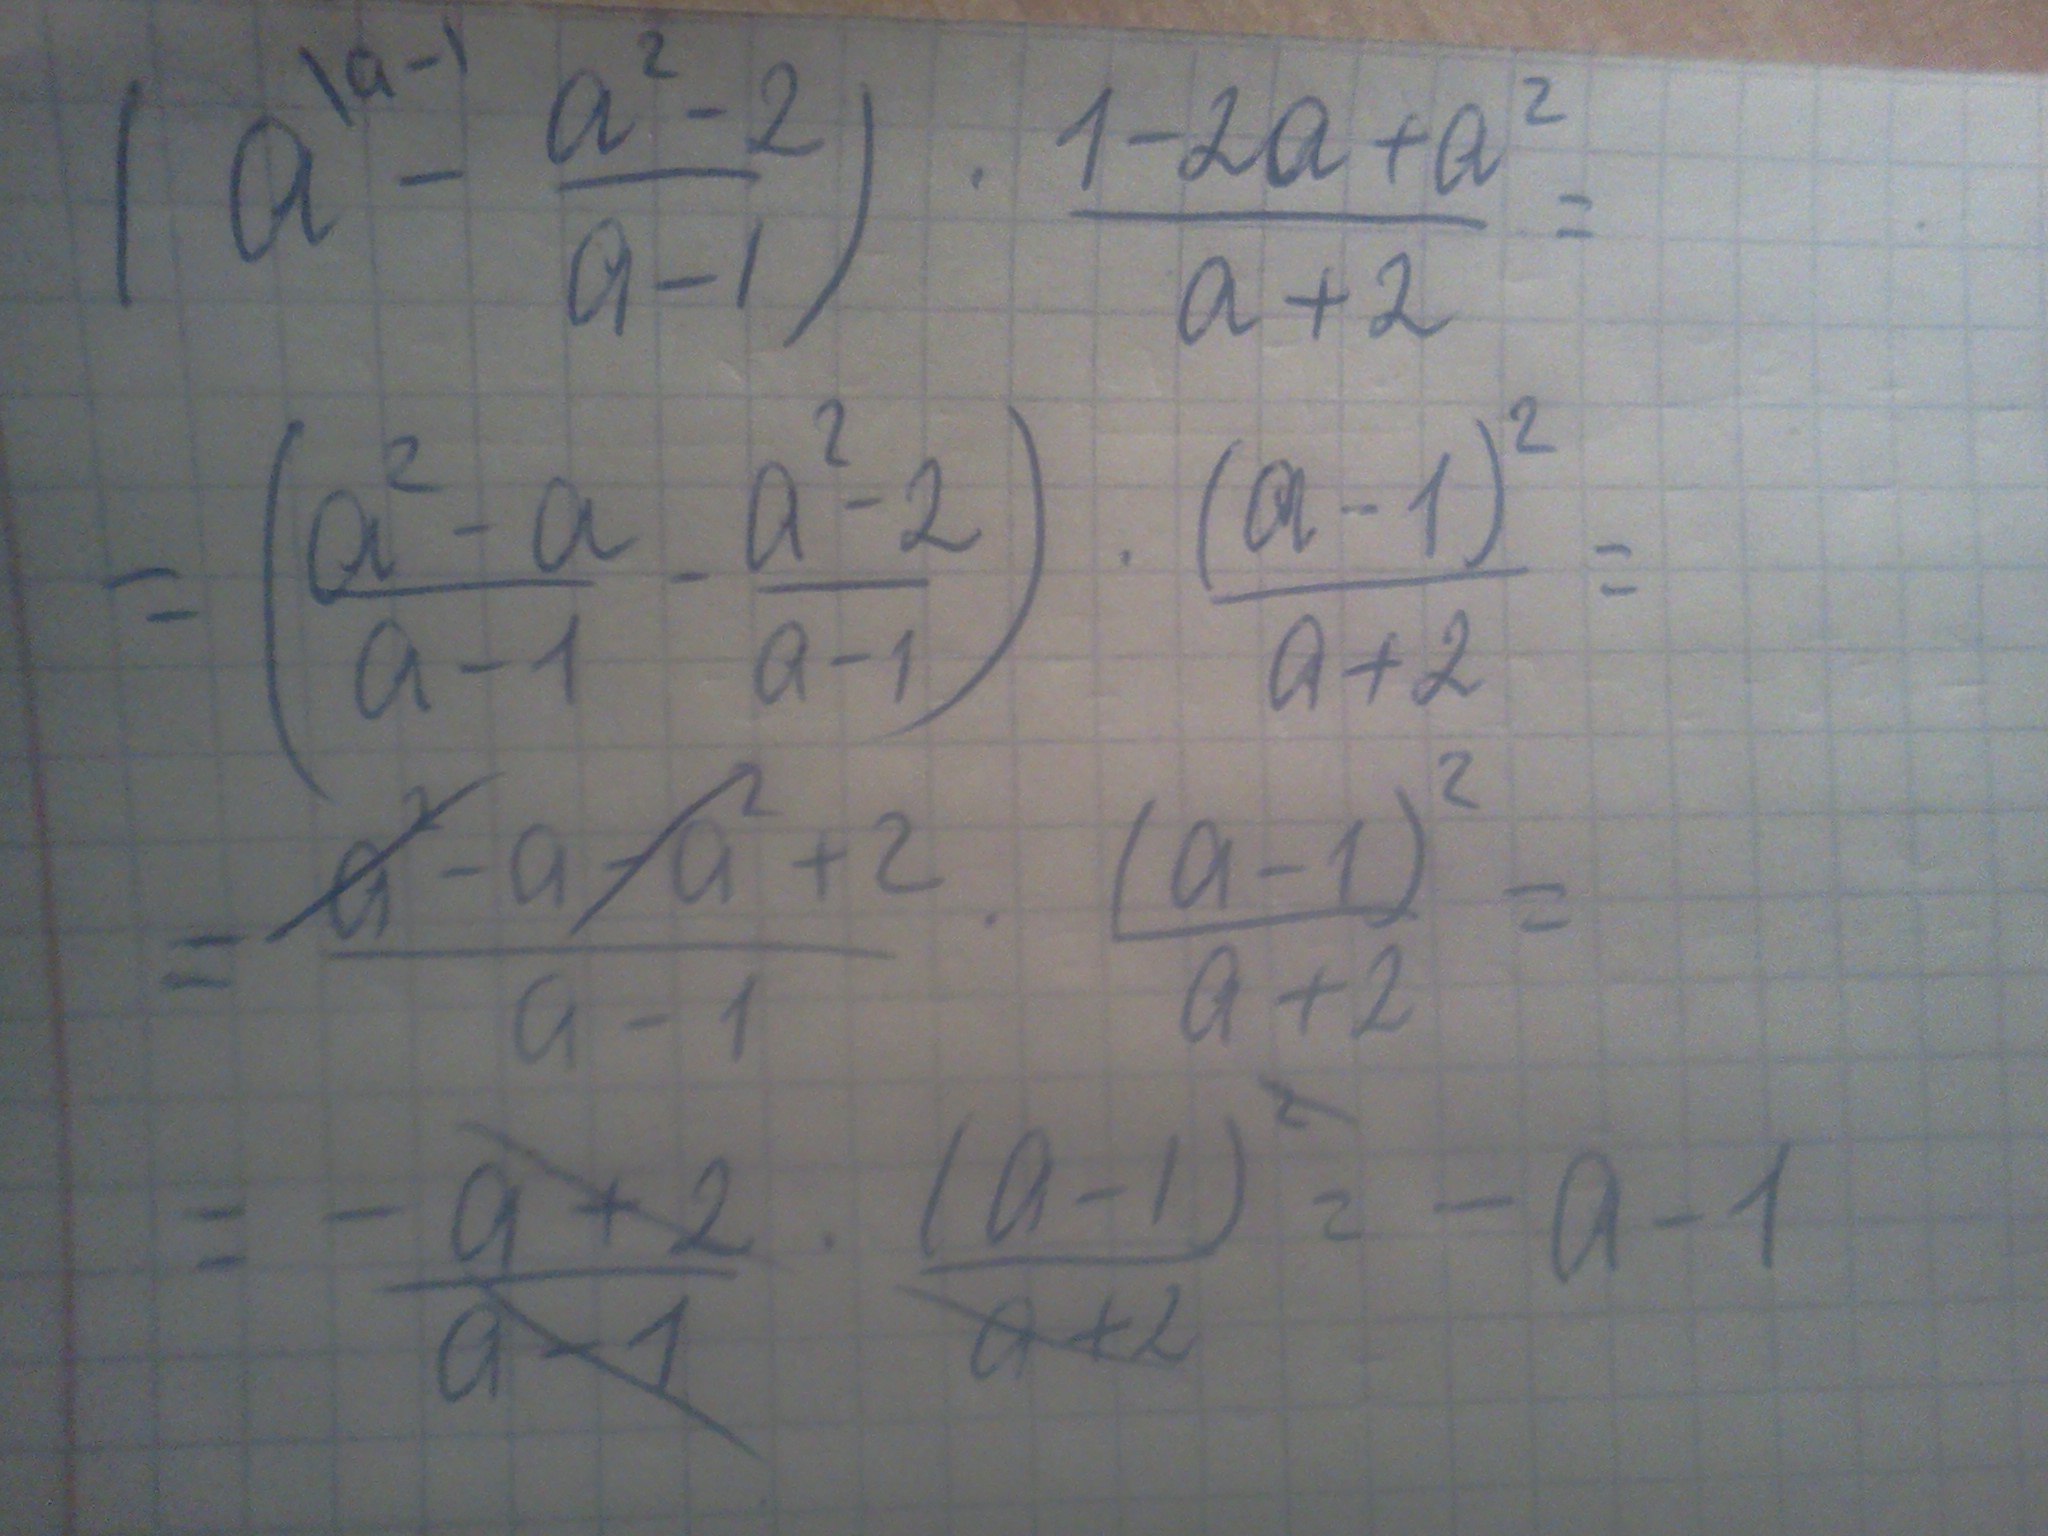 (a^{\a-1} - \frac{a^2-2}{a-1}) \cdot \frac{1-2a+a^2}{a+2} =
= (\frac{a^2-a}{a-1} - \frac{a^2-2}{a-1}) \cdot \frac{(a-1)^2}{a+2} =
= \frac{a^2-a-a^2+2}{a-1} \cdot \frac{(a-1)^2}{a+2} =
= -\frac{a+2}{a-1} \cdot \frac{(a-1)^2}{a+2} = -a-1